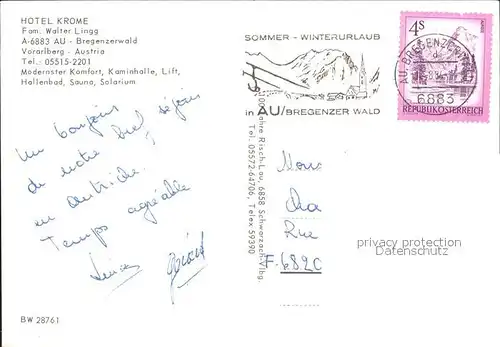 HOTEL KROME
Fam. Walter Lingg
A-6883 AU - Bregenzerwald
Vorarlberg - Austria
Tel.: 05515-2201
Modernster Komfort, Kaminhalle, Lift,
Hallenbad, Sauna, Solarium
SOMMER - WINTERURLAUB
in AU/BREGENZER WALD
4S
AU, BREGENZERWALD
6883
REPUBLIK ÖSTERREICH
Un bonjour
de notre bref séjour
en Autriche.
Temps agréable
Gérard
Jahre Risch-Lau, 6858 Schwarzach-Vlbg.
Tel. 05572-64706, Telex 59390
Rue
F-6820
privacy protection
Datenschutz
BW 28761